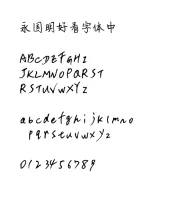 永国明好看字体中
ABCDEFGHI
JKLMNOPQRST
RSTUVWXYZ
abcdefghijklmno
pqrstuvwxyz
0123456789